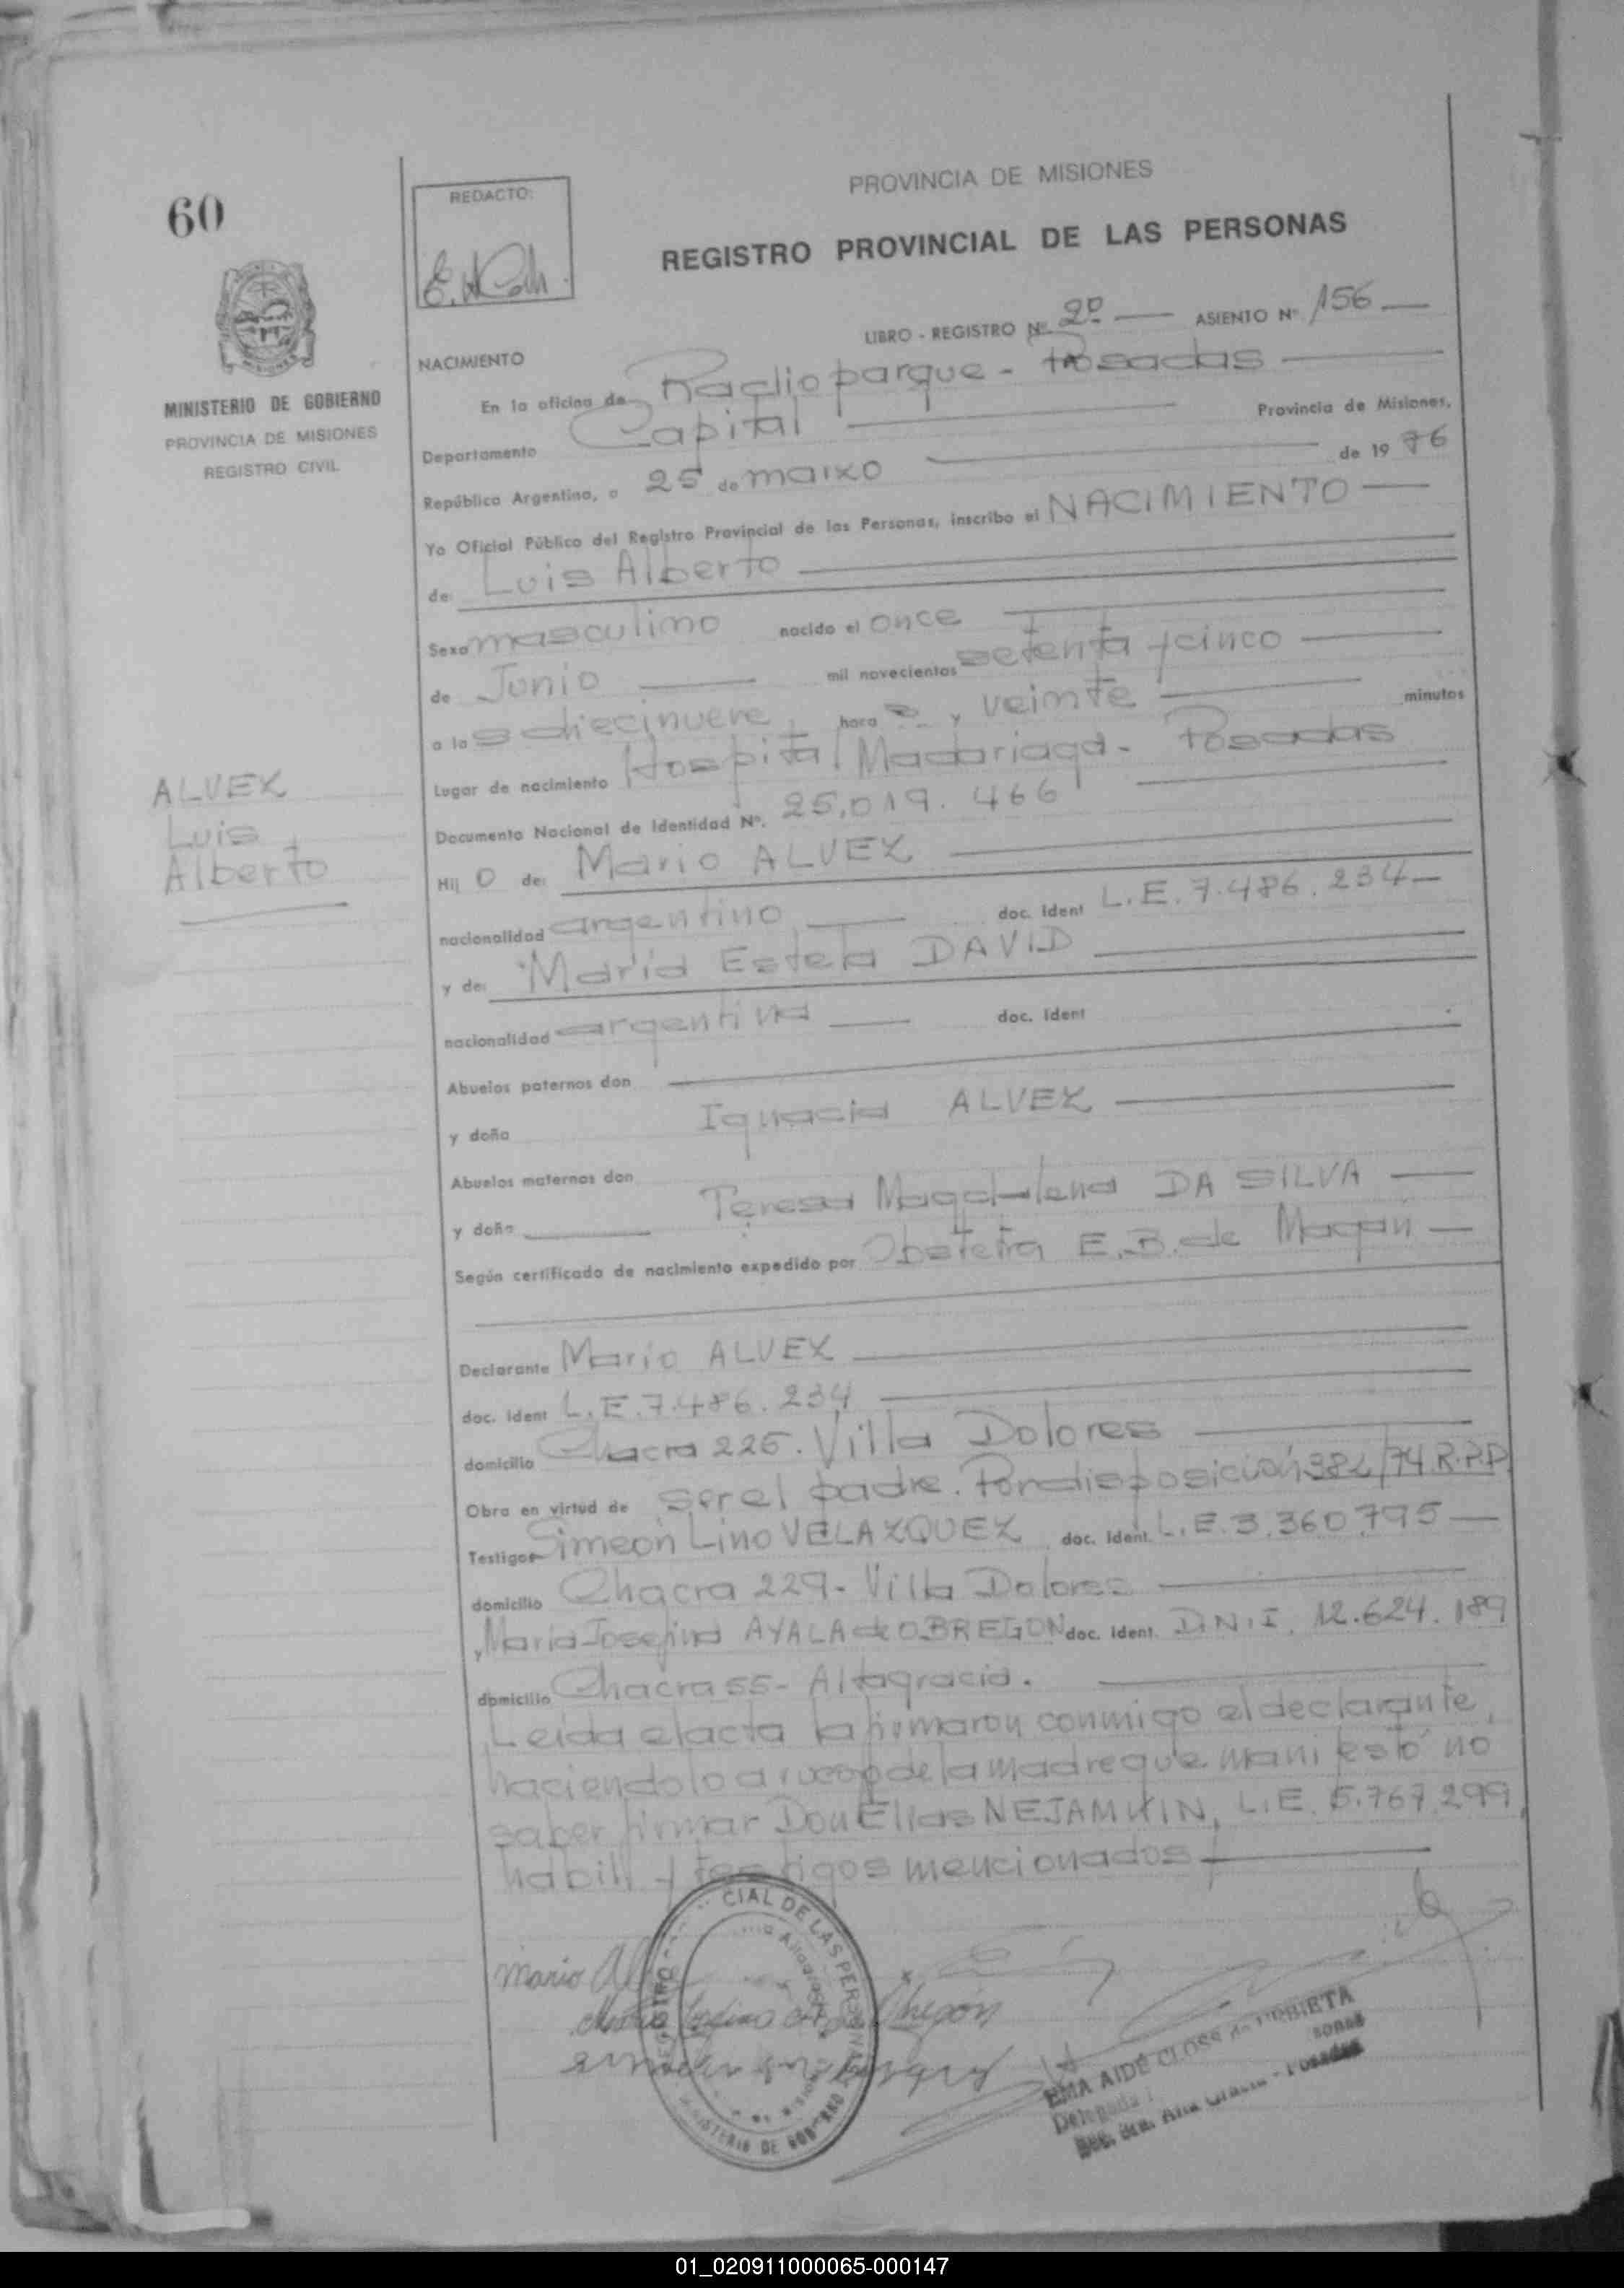 60
REDACTO:
PROVINCIA DE MISIONES
REGISTRO PROVINCIAL DE LAS PERSONAS
MINISTERIO DE GOBIERNO
PROVINCIA DE MISIONES
REGISTRO CIVIL
LIBRO - REGISTRO Nº 2º ASIENTO Nº 156
NACIMIENTO
En la oficina de Radioparque - Posadas
Departamento Capital Provincia de Misiones,
República Argentina, a 25 de marzo de 19 76
Yo Oficial Público del Registro Provincial de las Personas, inscribo el NACIMIENTO
de: Luis Alberto
Sexo masculino nacido el once
de Junio mil novecientos setenta y cinco
a las diecinueve hora s y veinte minutos
Lugar de nacimiento Hospital Madariaga - Posadas
Documento Nacional de Identidad Nº. 25.019.466
ALVEZ
Luis
Alberto
Hij o de: Mario ALVEZ
nacionalidad argentino doc. ident L.E. 7.486.234
y de: María Estela DAVID
nacionalidad argentina doc. ident
Abuelos paternos don
y doña Ignacia ALVEZ
Abuelos maternos don
y doña Teresa Magdalena DA SILVA
Según certificado de nacimiento expedido por Obstetra E.B. de Magan
Declarante Mario ALVEZ
doc. ident L.E. 7.486.234
domicilio Chacra 225. Villa Dolores
Obra en virtud de ser el padre. Por disposición 382/74 R.P.P.
Testigos Simeón Lino VELAZQUEZ doc. ident. L.E. 3.360.795
domicilio Chacra 229 - Villa Dolores
y María Josefina AYALA de OBREGON doc. ident. D.N.I. 12.624.189
domicilio Chacra 55 - Altagracia.
Leída el acta la firmaron conmigo el declarante,
haciendolo a ruego de la madre que manifestó no
saber firmar Don Elías NEJAMKIN, L.E. 5.767.299,
habill y testigos mencionados
Mario
CIAL DE LAS PERSONAS
MINISTERIO DE GOBIERNO
EMA AIDÉ CLOSS de URBIETA
Delegada
01_020911000065-000147